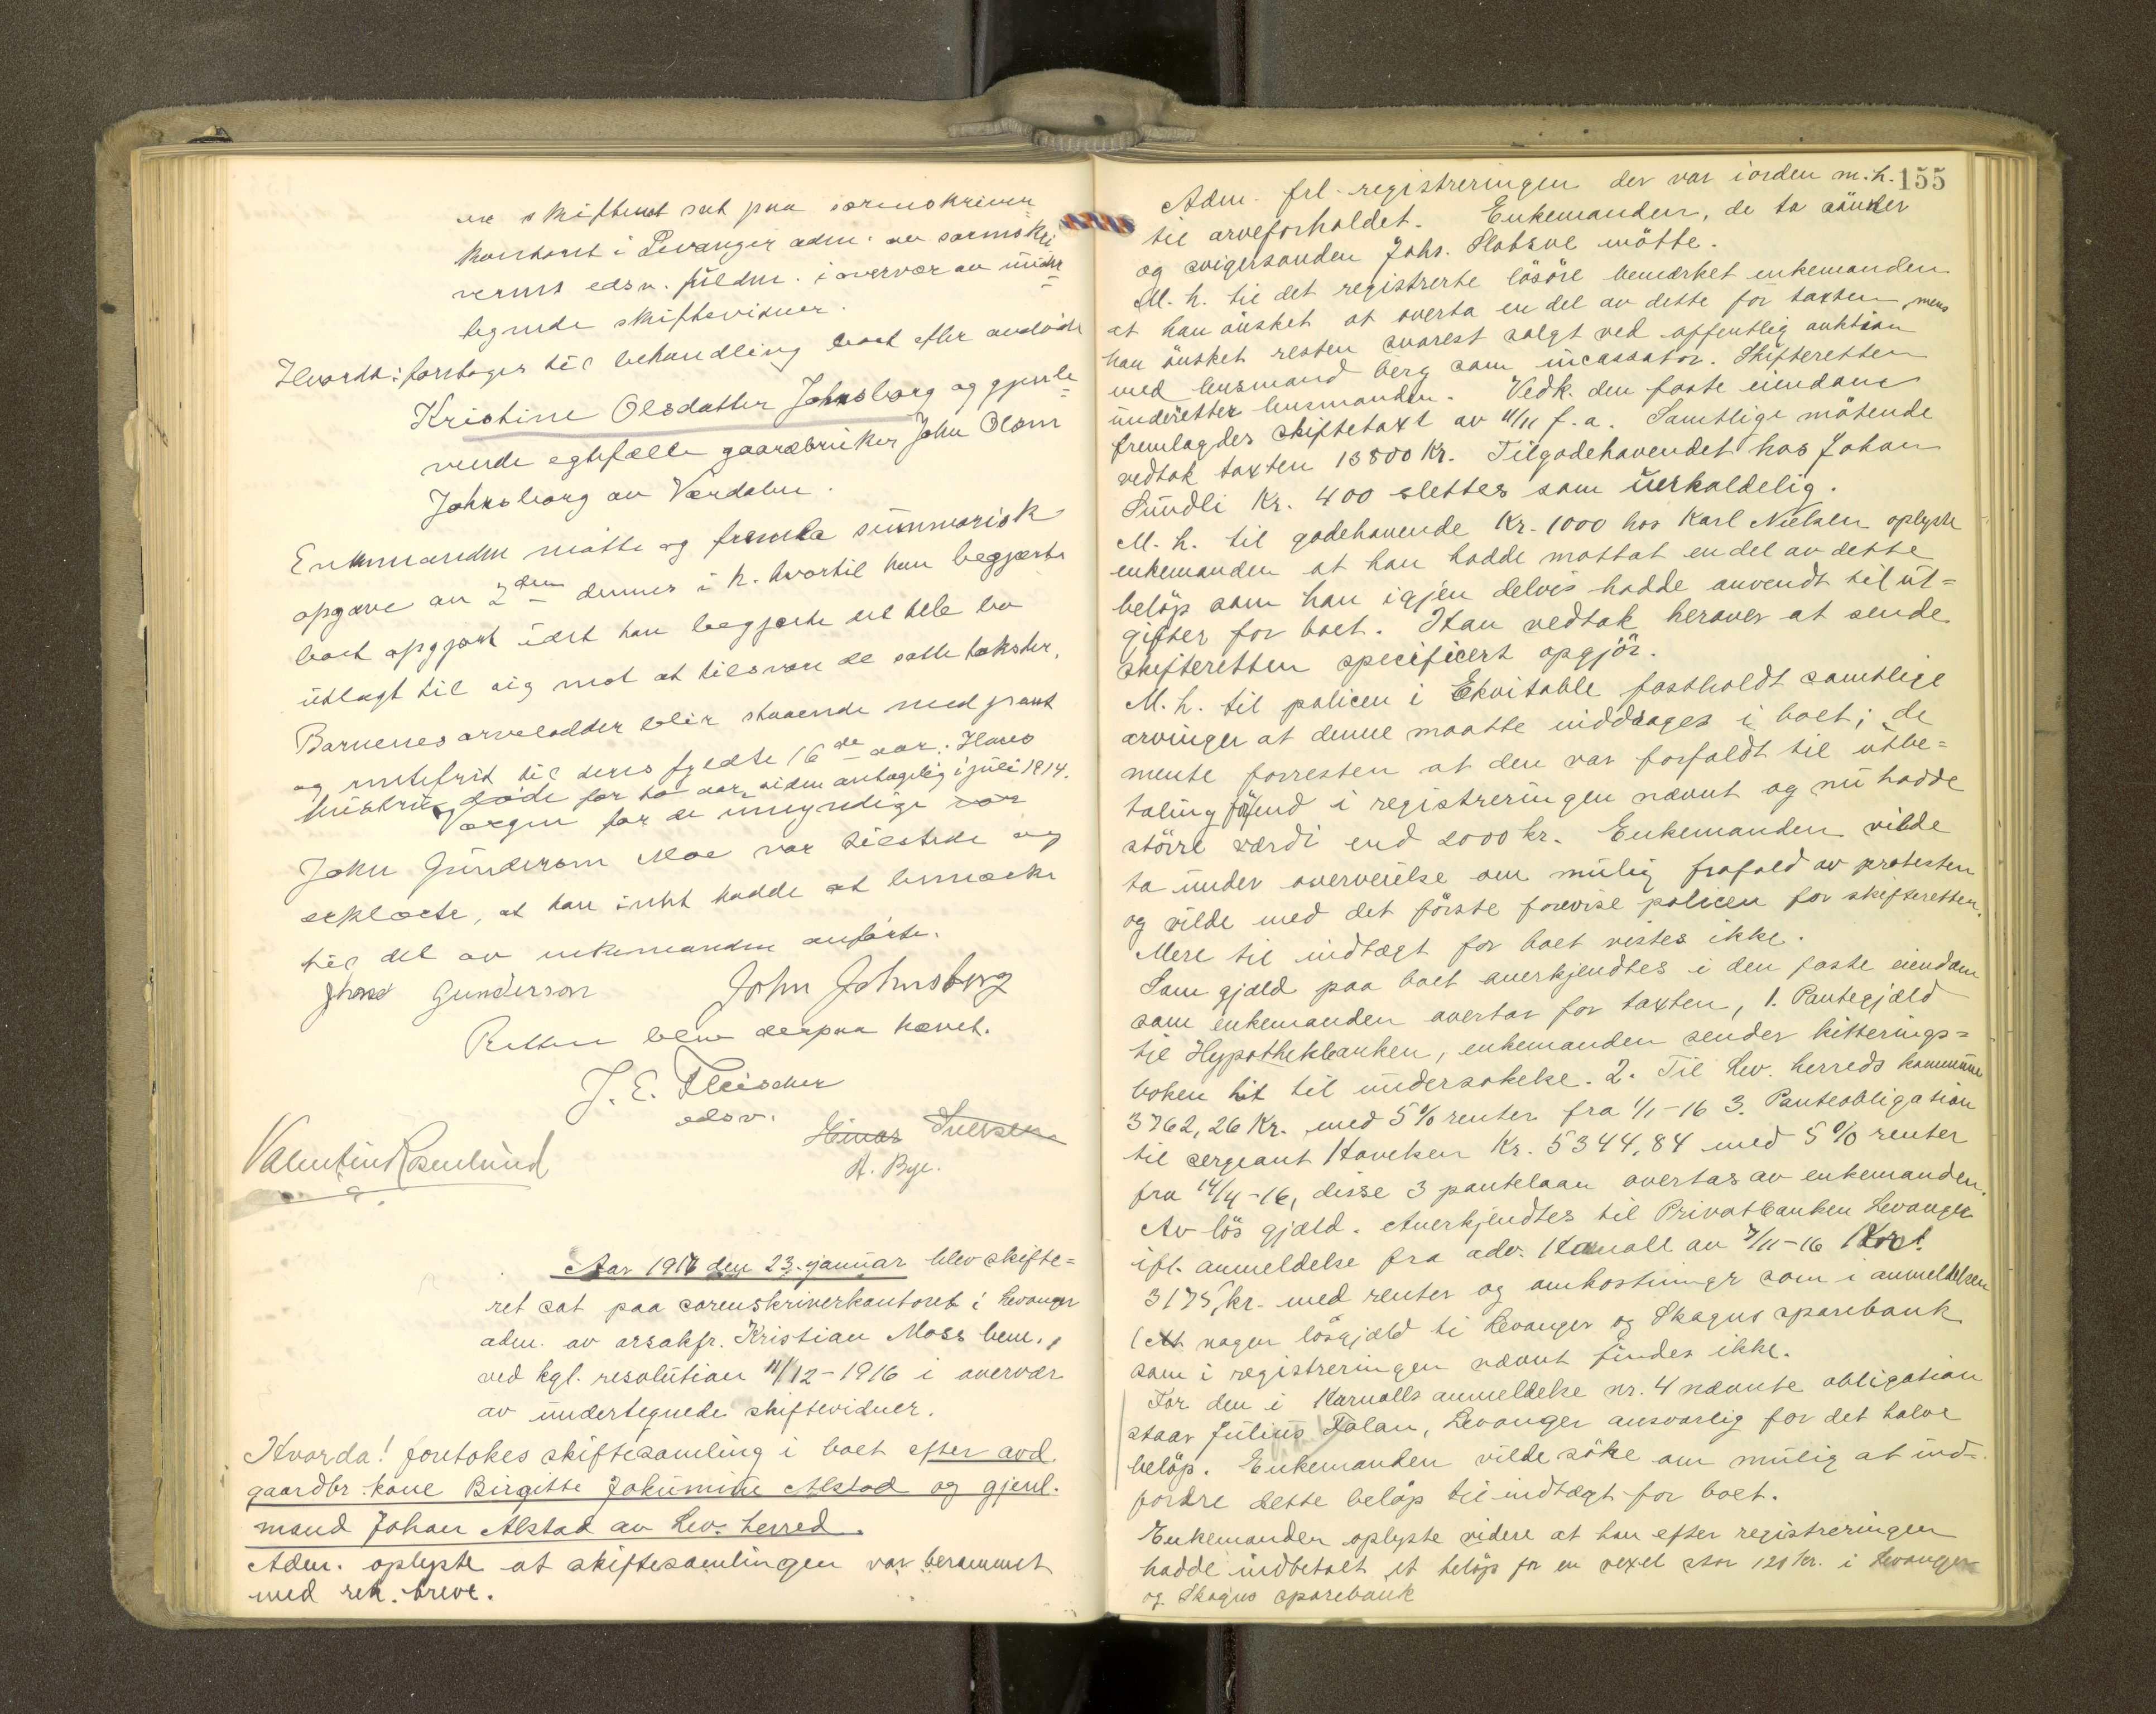 skifteret sat paa sorenskriver
kontoret i Levanger adm. av sorenskri
verens edsv. fuldm. i overvær av under
tegnede skiftevidner.
Hvorda: foretoges til behandling boet efter avdøde
Kristine Olsdatter Johnsborg og gjenle
vende egtefælle gaardbruker John Olsen
Johnsborg av Værdalen.
Enkemanden møtte og fremla summarisk
opgave av 2den dennes i h. hvortil han begjærte
boet opgjort idet han begjærte det hele bo
utlagt til sig mot at tilsvare de satte takster.
Barnenes arvelodder blir staaende med pant
og rentefrit til deres fyldte 16de aar. Hans
hustru døde for to aar siden antagelig i juli 1914.
Vergen for de umyndige var
John Gunderson Moe var tilstede og
erklærte, at han intet hadde at bemærke
til det av enkemanden anførte.
Gunderson John Johnsborg
Retten blev derpaa hævet.
J. E. Fleischer
edsv.
Valentin Rosenlund
A. Bye.
Aar 1917 den 23. januar blev skifte=
ret sat paa sorenskriverkontoret i Levanger
adm. av orsakfr. Kristian Moss bem.,
ved kgl. resolution 11/12-1916 i overvær
av undertegnede skiftevidner.
Hvorda! foretokes skiftesamling i boet efter avd.
gaardbr. kone Birgitte Jokumine Alstad og gjenl.
mand Johan Alstad av Lev. herred.
Adm. oplyste at skiftesamlingen var berammet
med rek. breve.
155
Adm. frl. registreringen der var iorden m.h.
til arveforholdet. Enkemanden, de to sönner
og svigersönnen Johs. Slotsve mötte.
M. h. til det registrerte lösöre bemærket enkemanden
at han önsket at overta en del av dette for taxten, mens
han önsket resten snarest solgt ved offentlig auktion
med lensmand Berg som incassator. Skifteretten
underretter lensmanden. Vedk. den faste eiendom
fremlagdes skiftetaxt av 11/11 f. a. Samtlige mötende
vedtok taxten 13800 Kr. Tilgodehavendet hos Johan
Sundli Kr. 400 slettes som uerholdelig.
M. h. til godehavende Kr. 1000 hos Karl Nielsen oplyste
enkemanden at han hadde mottat en del av dette
belöp som han igjen delvis hadde anvendt til ut=
gifter for boet. Han vedtok herover at sende
skifteretten specificert opgjör.
M. h. til policen i Ekvitable fastholdt samtlige
arvinger at denne maatte inddrages i boet; de
mente forresten at den var forfaldt til utbe=
taling för end i registreringen nævnt og nu hadde
större værdi end 2000 kr. Enkemanden vilde
ta under overveielse om mulig frafald av protesten
og vilde med det förste forevise policen for skifteretten.
Mere til indtægt for boet vistes ikke.
Som gjæld paa boet anerkjendtes i den faste eiendom
som enkemanden overtar for taxten, 1. Pantegjæld
til Hypothekbanken, enkemanden sender kvitterings=
boken hit til undersökelse. 2. Til Lev. herreds kommune
3762,26 Kr. med 5% renter fra 1/1-16 3. Panteobligation
til sergeant Hoveksen Kr. 5344,84 med 5% renter
fra 14/4-16, disse 3 pantelaan overtas av enkemanden.
Av lös gjæld. Anerkjendtes til Privatbanken Levanger
ifl. anmeldelse fra adv. Karnall av 7/11-16
3175, kr. med renter og omkostninger som i anmeldelsen
(At nogen lösgjæld ti Levanger og Skogns sparebank
som i registreringen nævnt findes ikke.
For den i Karnalls anmeldelse nr. 4 nævnte obligation
staar Julius Falan, Levanger ansvarlig for det halve
belöp. Enkemanden vilde söke om mulig at ind=
fordre dette belöp til indtægt for boet.
Enkemanden oplyste videre at han efter registreringen
hadde indbetalt et belöp for en vexel stor 120 kr. i Levanger
og Skogns sparebank